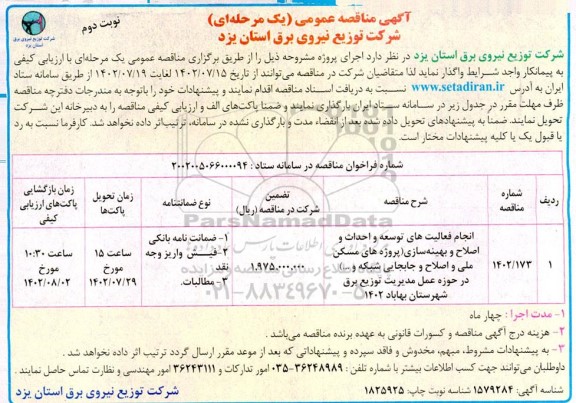 نوبت دوم
آگهی مناقصه عمومی (یک مرحله‌ای)
شرکت توزیع نیروی برق استان یزد
شرکت توزیع نیروی برق استان یزد
شرکت توزیع نیروی برق استان یزد در نظر دارد اجرای پروژه مشروحه ذیل را از طریق برگزاری مناقصه عمومی یک مرحله‌ای با ارزیابی کیفی
به پیمانکار واجد شرایط واگذار نماید لذا متقاضیان شرکت در مناقصه می‌توانند از تاریخ ۱۴۰۲/۰۷/۱۵ لغایت ۱۴۰۲/۰۷/۱۹ از طریق سامانه ستاد
ایران به آدرس www.setadiran.ir نسبت به دریافت اسناد مناقصه اقدام نمایند و پیشنهادات خود را باتوجه به مندرجات دفترچه مناقصه
ظرف مهلت مقرر در جدول زیر در سامانه ستاد ایران بارگذاری نمایند و ضمنا پاکت‌های الف و ارزیابی کیفی مناقصه را به دبیرخانه این شرکت
تحویل نمایند. ضمنا به پیشنهادهای تحویل داده شده بعد از انقضاء مدت و بارگذاری نشده در سامانه، ترتیب‌اثر داده نخواهد شد. کارفرما نسبت به رد
یا قبول یک یا کلیه پیشنهادات مختار است.
شماره فراخوان مناقصه در سامانه ستاد : ۲۰۰۲۰۰۵۰۶۶۰۰۰۰۹۴
ردیف | شماره مناقصه | شرح مناقصه | تضمین شرکت در مناقصه (ریال) | نوع ضمانتنامه | زمان تحویل پاکت‌ها | زمان بازگشایی پاکت‌های ارزیابی کیفی
۱ | ۱۴۰۲/۱۷۳ | انجام فعالیت های توسعه و احداث و اصلاح و بهینه‌سازی(پروژه های مسکن ملی و اصلاح و جابجایی شبکه و ...) در حوزه عمل مدیریت توزیع برق شهرستان بهاباد ۱۴۰۲ | ۱,۹۷۵,۰۰۰,۰۰۰ | ۱- ضمانت نامه بانکی ۲- فیش واریز وجه نقد ۳- مطالبات. | ساعت ۱۵ مورخ ۱۴۰۲/۰۷/۲۹ | ساعت ۱۰:۳۰ مورخ ۱۴۰۲/۰۸/۰۲
ParsNamadData
۰۲۱-۸۸۳۴۹۶۷۰-۵
۱- مدت اجرا : چهار ماه
۲- هزینه درج آگهی مناقصه و کسورات قانونی به عهده برنده مناقصه می‌باشد .
۳- به پیشنهادات مشروط، مبهم، مخدوش و فاقد سپرده و پیشنهاداتی که بعد از موعد مقرر ارسال گردد ترتیب اثر داده نخواهد شد .
داوطلبان می‌توانند جهت کسب اطلاعات بیشتر با شماره تلفن : ۳۶۲۴۸۹۸۹-۰۳۵ امور تدارکات و ۳۶۲۴۳۱۱۱ امور مهندسی و نظارت تماس حاصل نمایند .
شناسه آگهی: ۱۵۷۹۲۸۴ شناسه نوبت چاپ: ۱۸۲۵۹۲۵
شرکت توزیع نیروی برق استان یزد